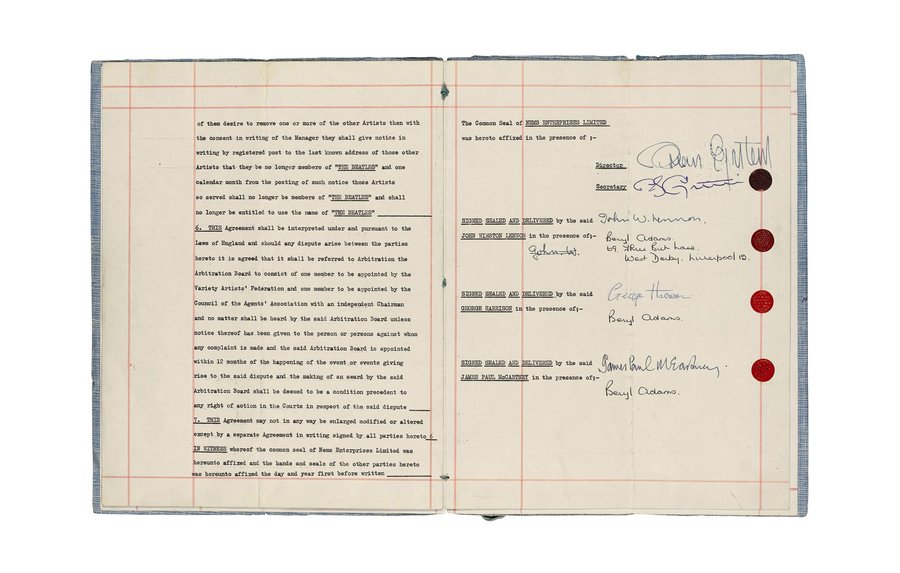 of them desire to remove one or more of the other Artists then with
the consent in writing of the Manager they shall give notice in
writing by registered post to the last known address of those other
Artists that they be no longer members of "THE BEATLES" and one
calendar month from the posting of such notice those Artists
so served shall no longer be members of "THE BEATLES" and shall
no longer be entitled to use the name of "THE BEATLES"
6. THIS Agreement shall be interpreted under and pursuant to the
Laws of England and should any dispute arise between the parties
hereto it is agreed that it shall be referred to Arbitration the
Arbitration Board to consist of one member to be appointed by the
Variety Artists' Federation and one member to be appointed by the
Council of the Agents' Association with an independent Chairman
and no matter shall be heard by the said Arbitration Board unless
notice thereof has been given to the person or persons against whom
any complaint is made and the said Arbitration Board is appointed
within 12 months of the happening of the event or events giving
rise to the said dispute and the making of an award by the said
Arbitration Board shall be deemed to be a condition precedent to
any right of action in the Courts in respect of the said dispute
7. THIS Agreement may not in any way be enlarged modified or altered
except by a separate Agreement in writing signed by all parties hereto
IN WITNESS whereof the common seal of Nems Enterprises Limited was
hereunto affixed and the hands and seals of the other parties hereto
was hereunto affixed the day and year first before written
The Common Seal of NEMS ENTERPRISES LIMITED
was hereto affixed in the presence of :-
Director Brian Epstein
Secretary
SIGNED SEALED AND DELIVERED by the said John W. Lennon.
JOHN WINSTON LENNON in the presence of:- Beryl Adams.
69,
West Derby. Liverpool 12.
SIGNED SEALED AND DELIVERED by the said George Harrison
GEORGE HARRISON in the presence of:- Beryl Adams.
SIGNED SEALED AND DELIVERED by the said James Paul McCartney.
JAMES PAUL McCARTNEY in the presence of:- Beryl Adams.